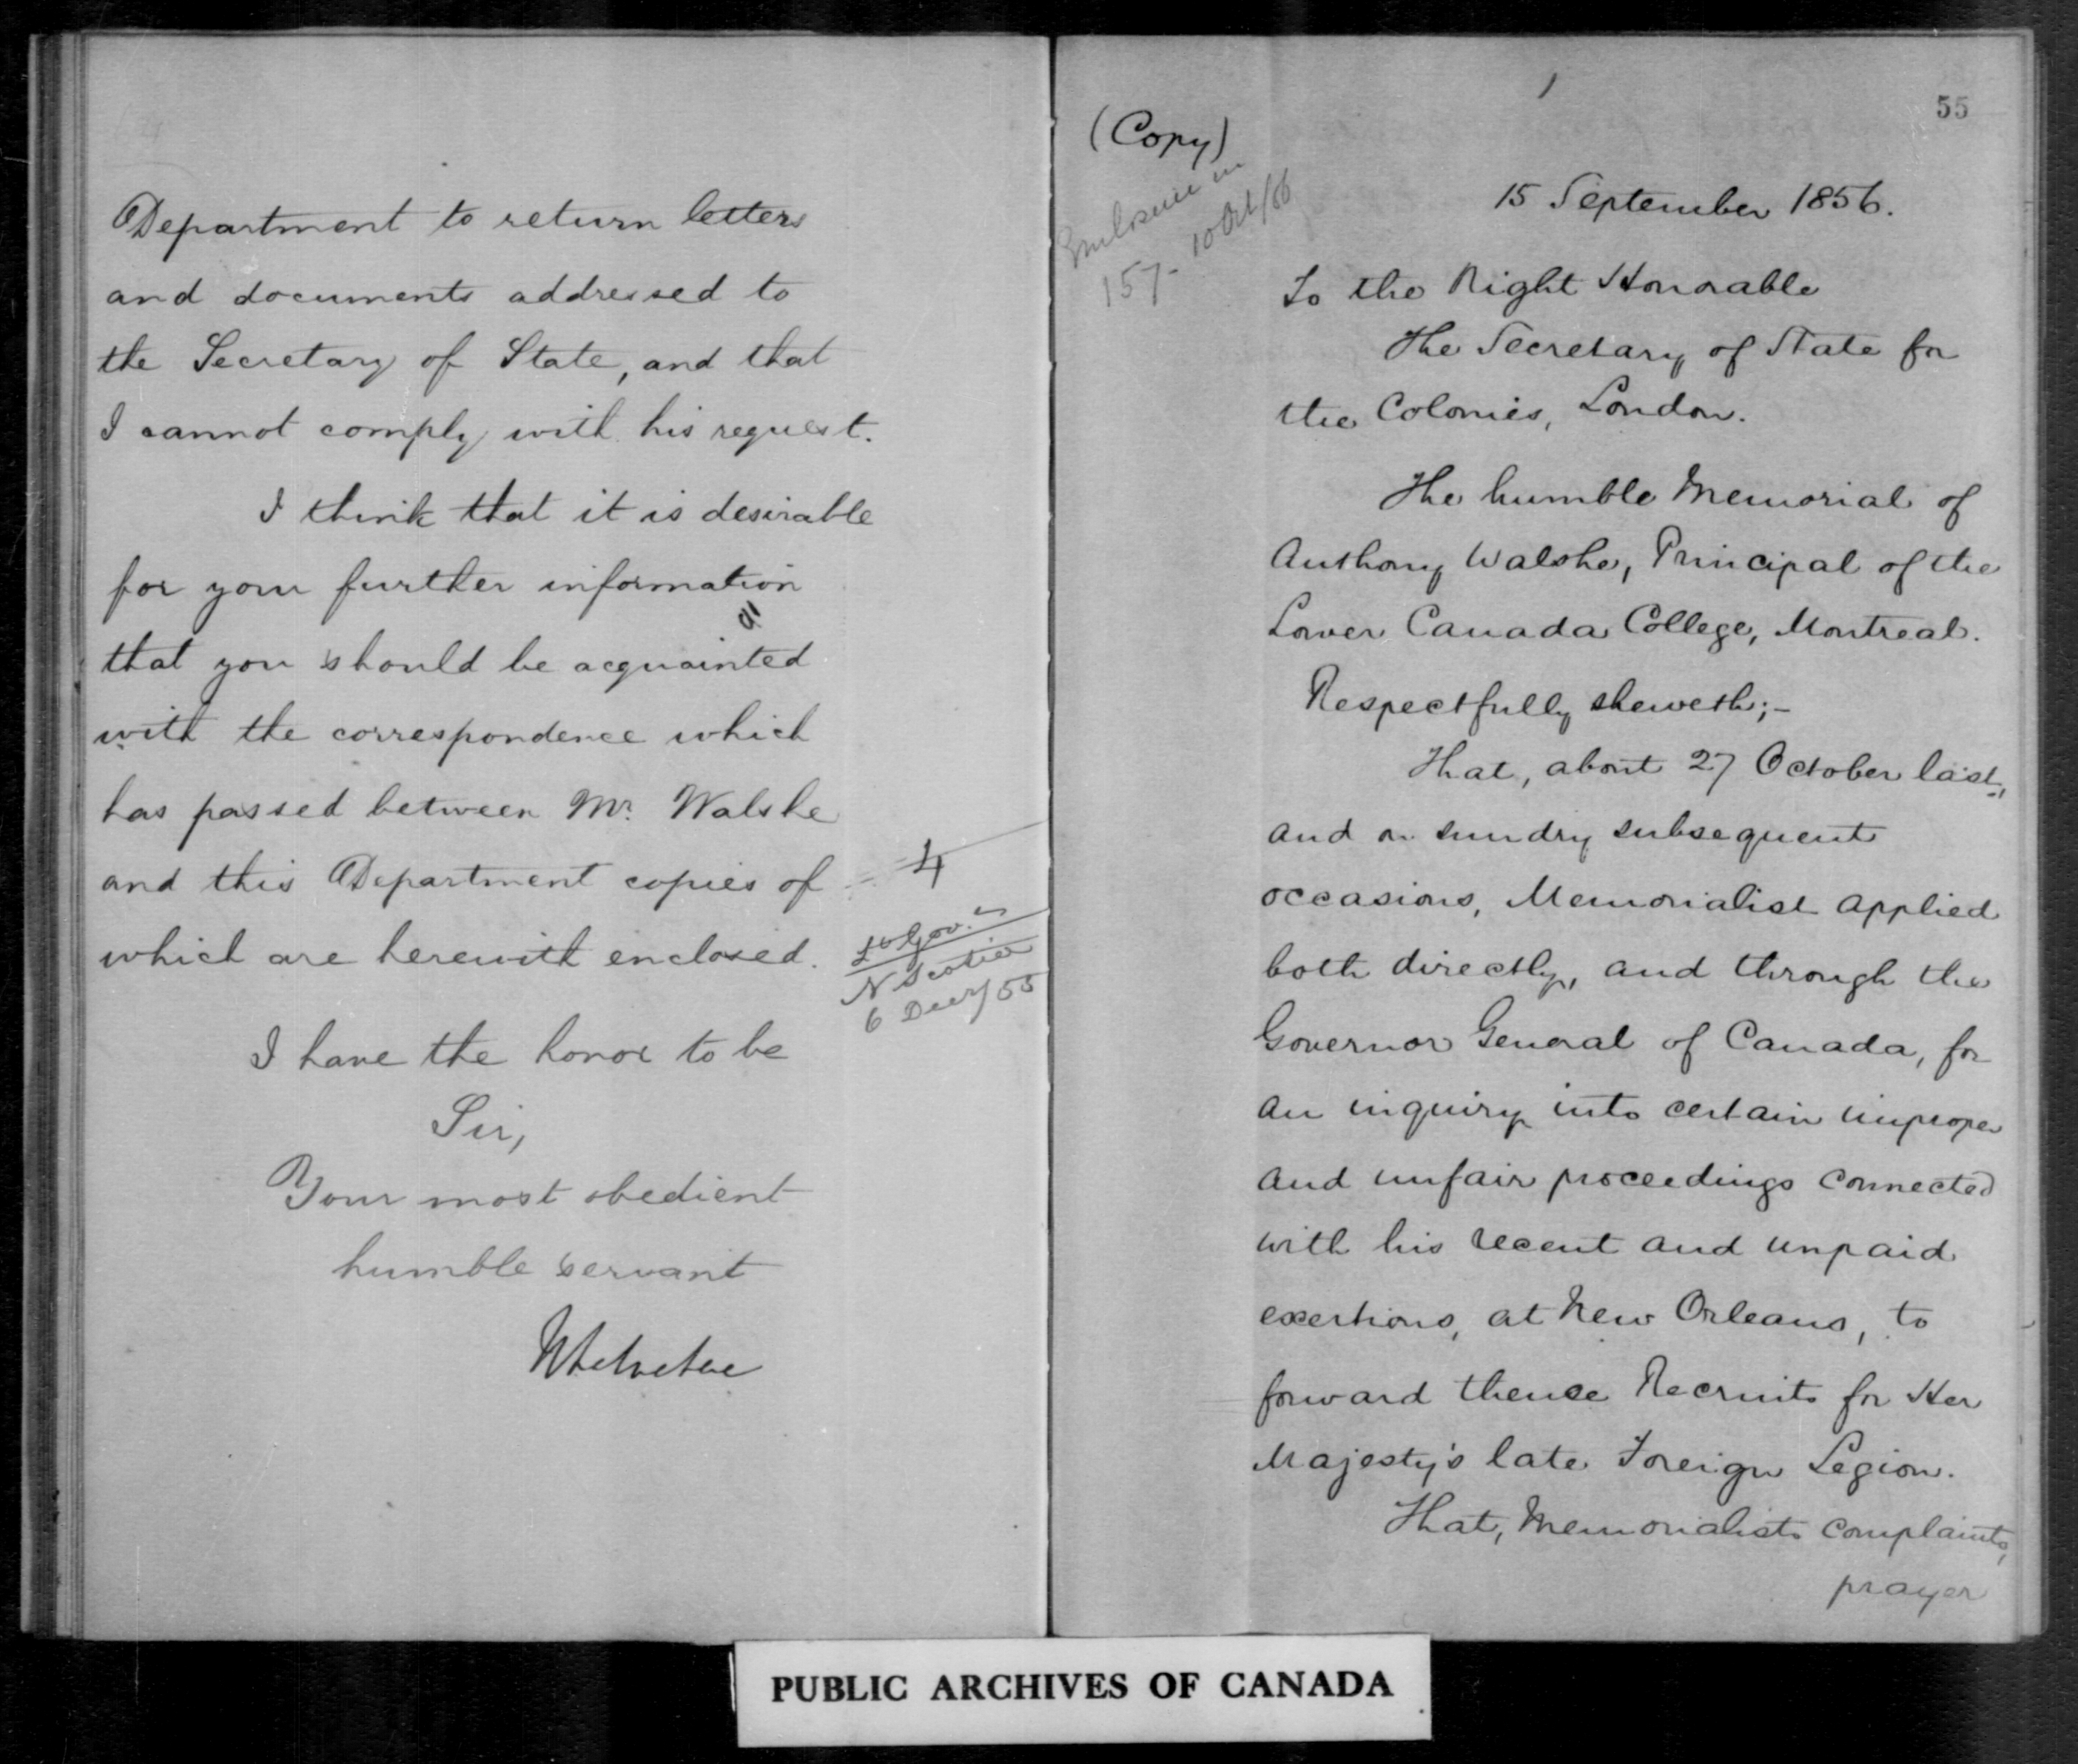 Department to return letters
and documents addressed to
the Secretary of State, and that
I cannot comply with his request.
I think that it is desirable
for your further information
that you should be acquainted
with the correspondence which
has passed between Mr. Walshe
and this Department copies of
which are herewith enclosed.
4
Lt Gov.
N Scotia
6 Decr/55
I have the honor to be
Sir,
Your most obedient
humble servant
55
(Copy)
Enclosure in
157 - 10 Oct/56
15 September 1856.
To the Right Honorable
The Secretary of State for
the Colonies, London.
The humble Memorial of
Anthony Walshe, Principal of the
Lower Canada College, Montreal.
Respectfully sheweth;-
That, about 27 October last,
and on sundry subsequent
occasions, Memorialist applied
both directly, and through the
Governor General of Canada, for
an inquiry into certain improper
and unfair proceedings connected
with his recent and unpaid
exertions, at New Orleans, to
forward thence Recruits for Her
Majesty's late Foreign Legion.
That, Memorialists complaints,
prayer
PUBLIC ARCHIVES OF CANADA